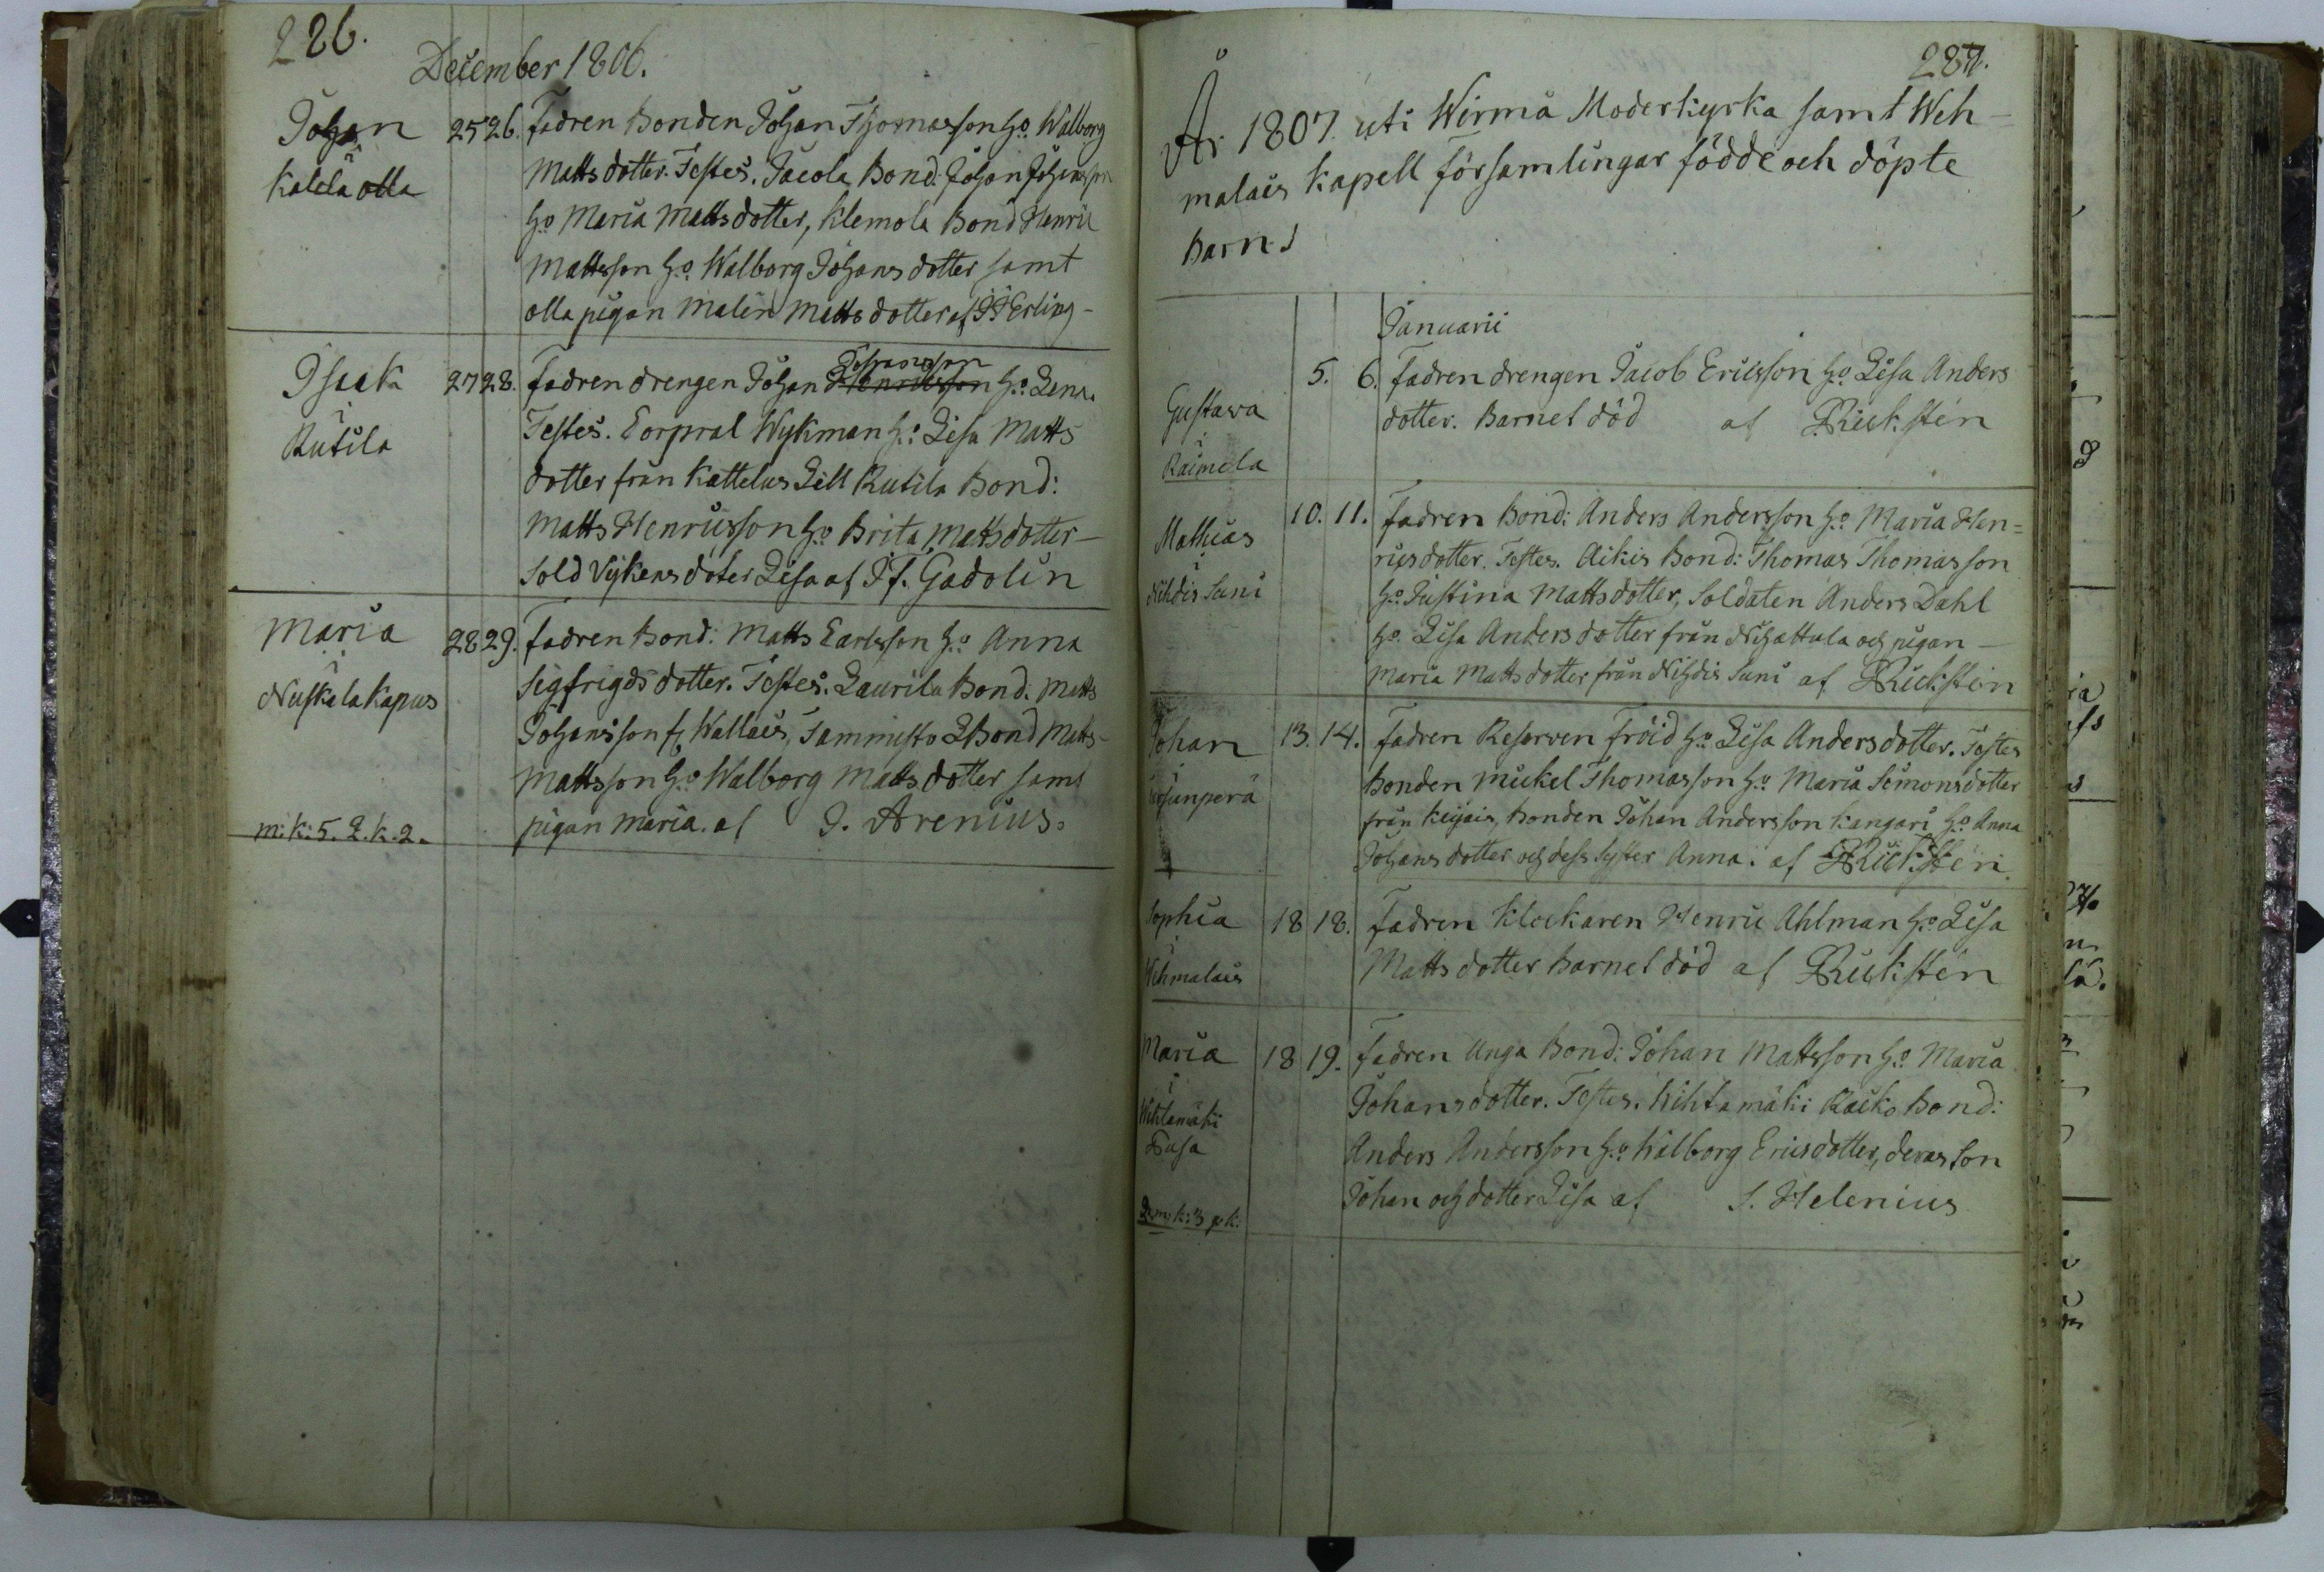 226.
December 1806.
Johan
Kalela olla
25 26. Fadren Bonden Johan Thomasson h:o Walborg
Mattsdotter. Testes. Jacola Bond. Johan Johansson
h:o Maria Mattsdotter, Klemola Bond Henric
Mattsson h:o Walborg Johansdotter samt
olla pigan Malin Mattsdotter af Erling-
Isaak
i
Rutila
27 28. Fadren drengen Johan Henriksson Johansson h:o Lena.
Testes. Corpral Wykman h:o Lisa Matts
dotter från Kattelus Lill Rutila Bond:
Matts Henricsson h:o Brita Mattsdotter-
Sold Vykens doter Lisa af Gadolin
Maria
i
Nuskala Kapus
28 29. Fadren Bond: Matts Carlsson h:o Anna
Sigfrigds dotter. Testes. Laurila Bond. Matts
Johansson fr Wallais, Tammisto Bond Matts-
Mattsson h:o Walborg Matts dotter samt
pigan Maria. af J. Arenius.
m: k: 5. Q. k. 2.
287.
År 1807. uti Wirmå Moderkyrka samt Weh-
malais Kapell församlingar födde och döpte
Barn.
Januarii
Gustava
i
Raimela
5. 6. Fadren drengen Jacob Ericsson h:o Lisa Anders
dotter. Barnet död af Rickstén
Mathias
i
Nihdis Suni
10. 11. Fadren Bond: Anders Andersson h:o Maria Hen=
ricsdotter. Testes. Aikis Bond: Thomas Thomasson
h:o Justina Mattsdotter, Soldaten Anders Dahl
h:o Lisa Andersdotter från Nihattula och pigan-
Maria Mattsdotter från Nihdis Suni af Rickstén
Johan
i
13. 14. Fadren Reserven Fröid h:o Lisa Andersdotter. Testes
Bonden Mickel Thomasson h:o Maria Simonsdotter
från Keijais, Bonden Johan Andersson Kangari h:o Anna
Johansdotter och dess Syster Anna. af Rickstén.
Sophia
i
Wehmalais
18 18. Fadren Klockaren Henric Ahlman h:o Lisa
Mattsdotter Barnet död af Rickstén
Maria
i
Wihtamäki
Tusa
18 19. Fadren Unga Bond: Johan Mattsson h:o Maria
Johansdotter. Testes. Wihtamäki Raiko Bond:
Anders Andersson h:o Walborg Ericsdotter, deras Son
Johan och dotter Lisa af S. Helenius
2. m: k: 3 q: k.